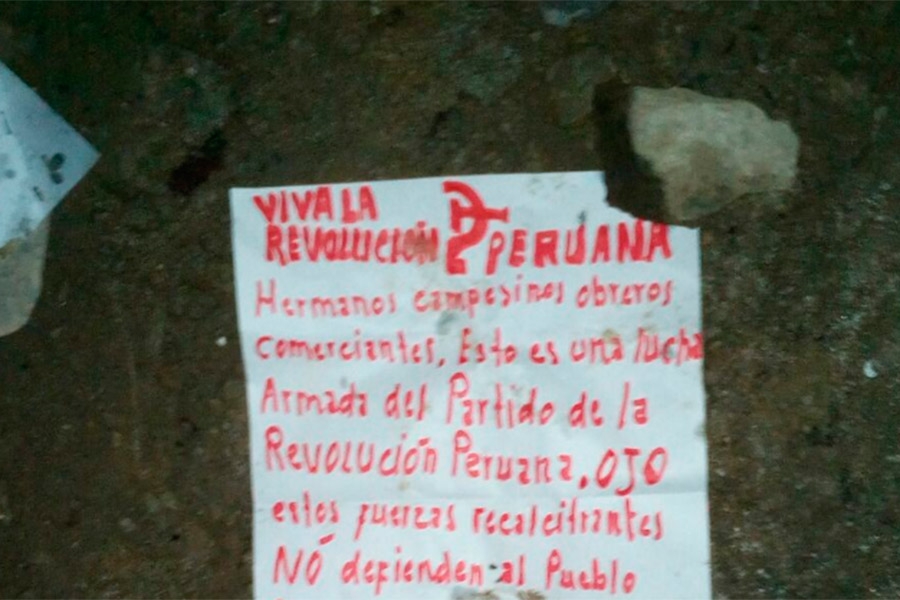 VIVA LA
REVOLUCIÓN PERUANA
Hermanos campesinos obreros
comerciantes, Esto es una lucha
Armada del Partido de la
Revolución Peruana, OJO
estos fuerzas recalcitrantes
NÓ defienden al Pueblo